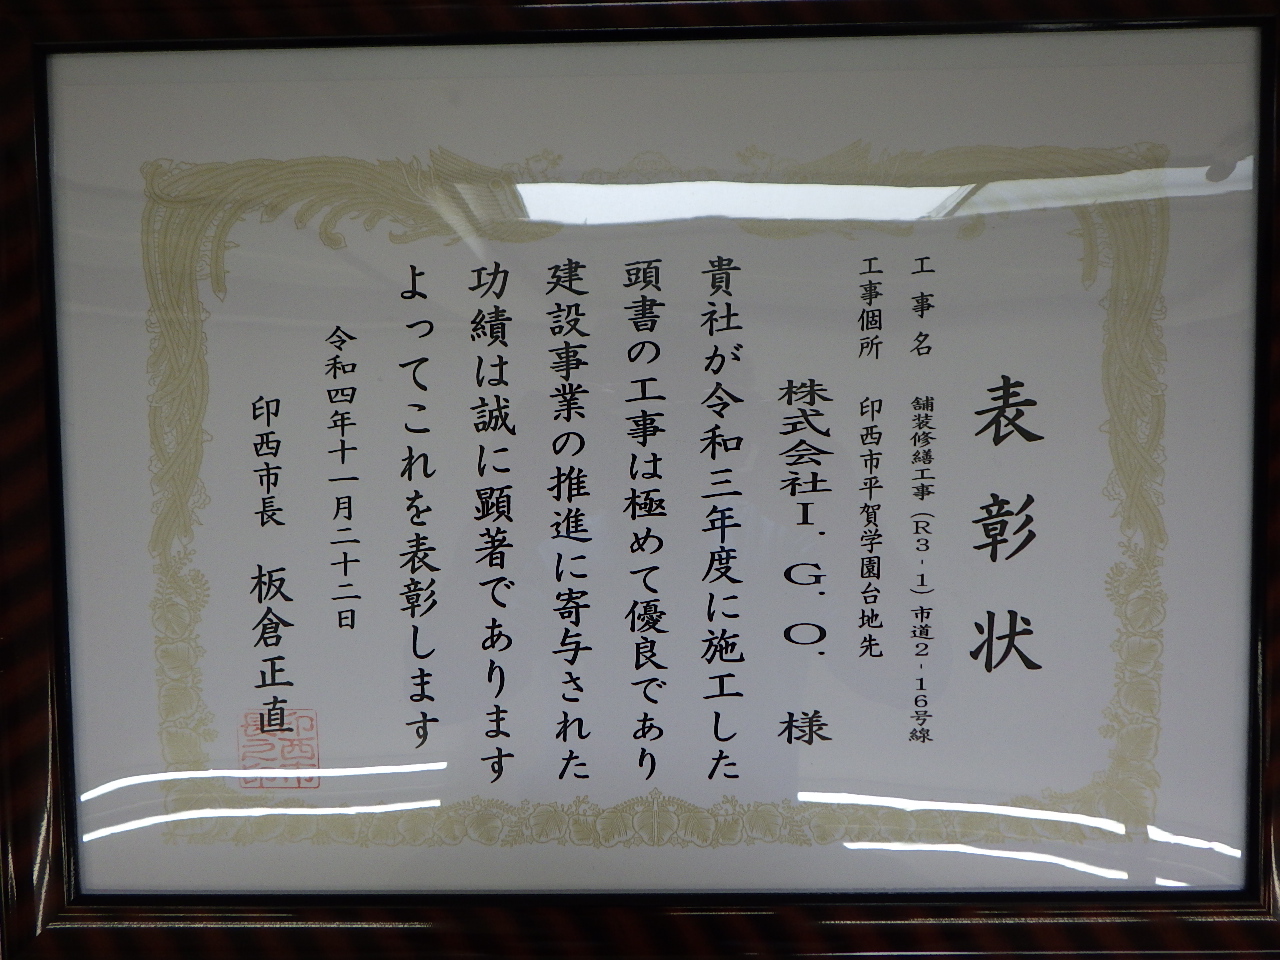 表彰状
工事名　舗装修繕工事（R3-1）市道2-16号線
工事個所　印西市平賀学園台地先
株式会社I.G.O.　様
貴社が令和三年度に施工した
頭書の工事は極めて優良であり
建設事業の推進に寄与された
功績は誠に顕著であります
よってこれを表彰します
令和四年十一月二十二日
印西市長　板倉正直
印西市
長之印